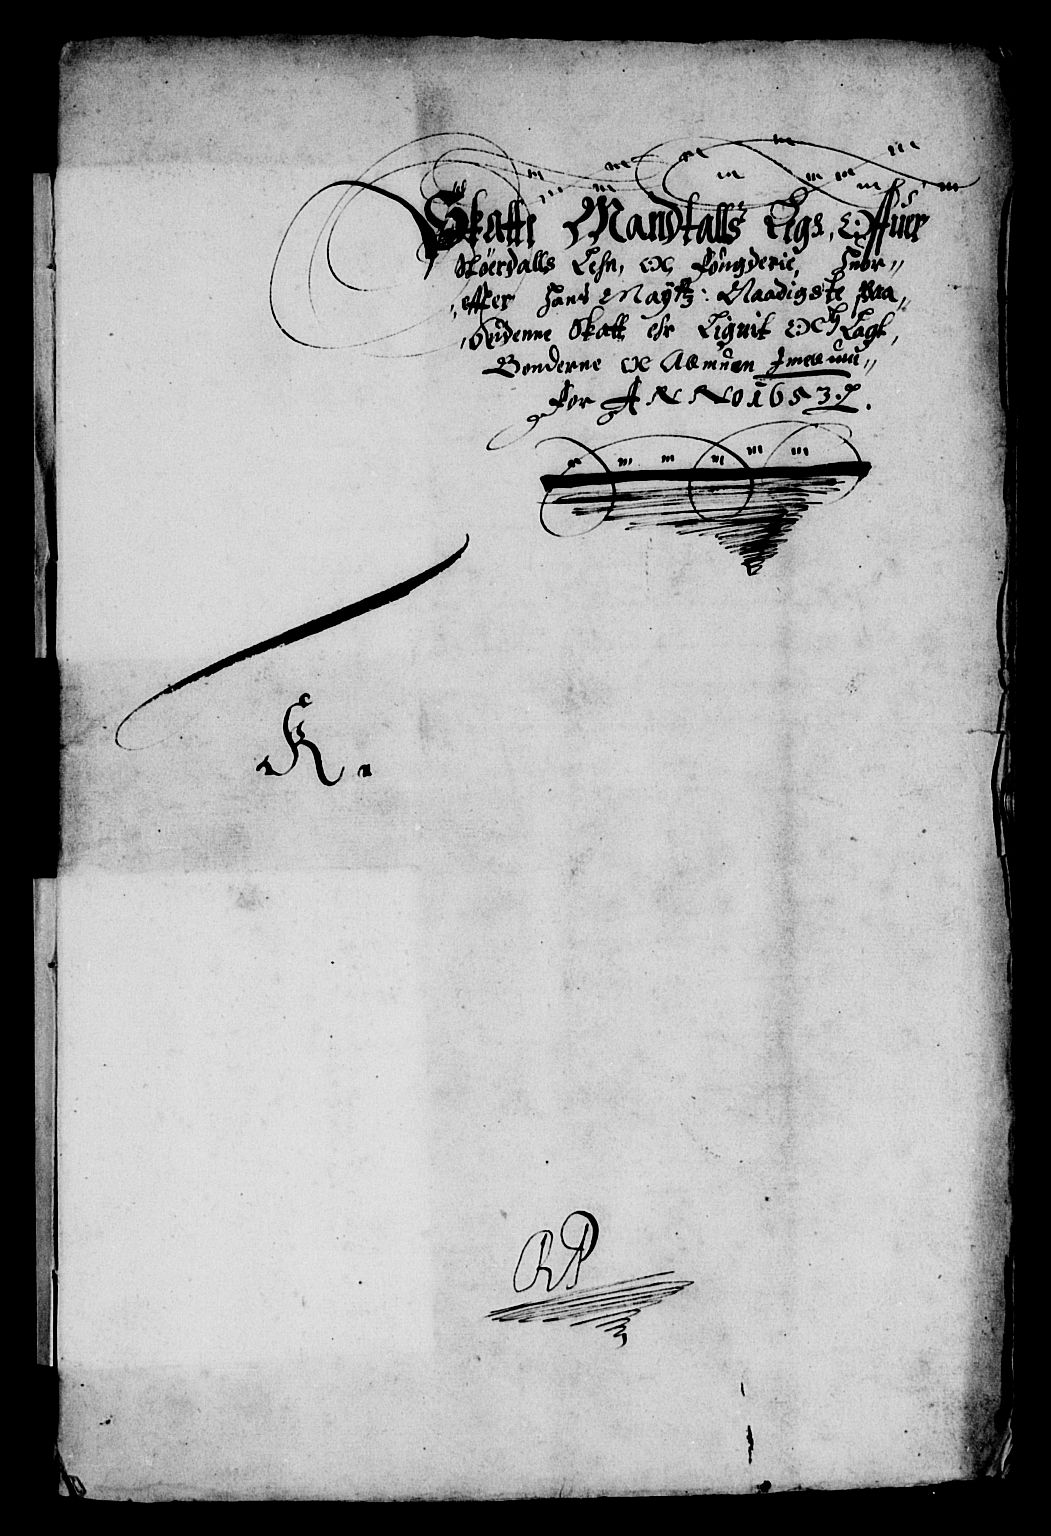 Skatte Mandtalls Ligs, Offuer
Støerdalls Lehn, och Fougderie, Huor„
„effter Hans Mayttz: Naadigste Paa„
„Budenne Skatt ehr Lignit Och Lagt,
Bonderne och Allmuen Imellum„
for ANNO 1653
K.
RP